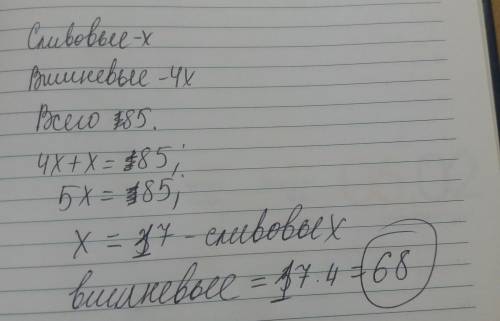 Сливовые - х
Вишневые - 4х
Всего 85.
4х + х = 85;
5х = 85;
х = 17 - сливовых
вишневые = 17 · 4 = 68